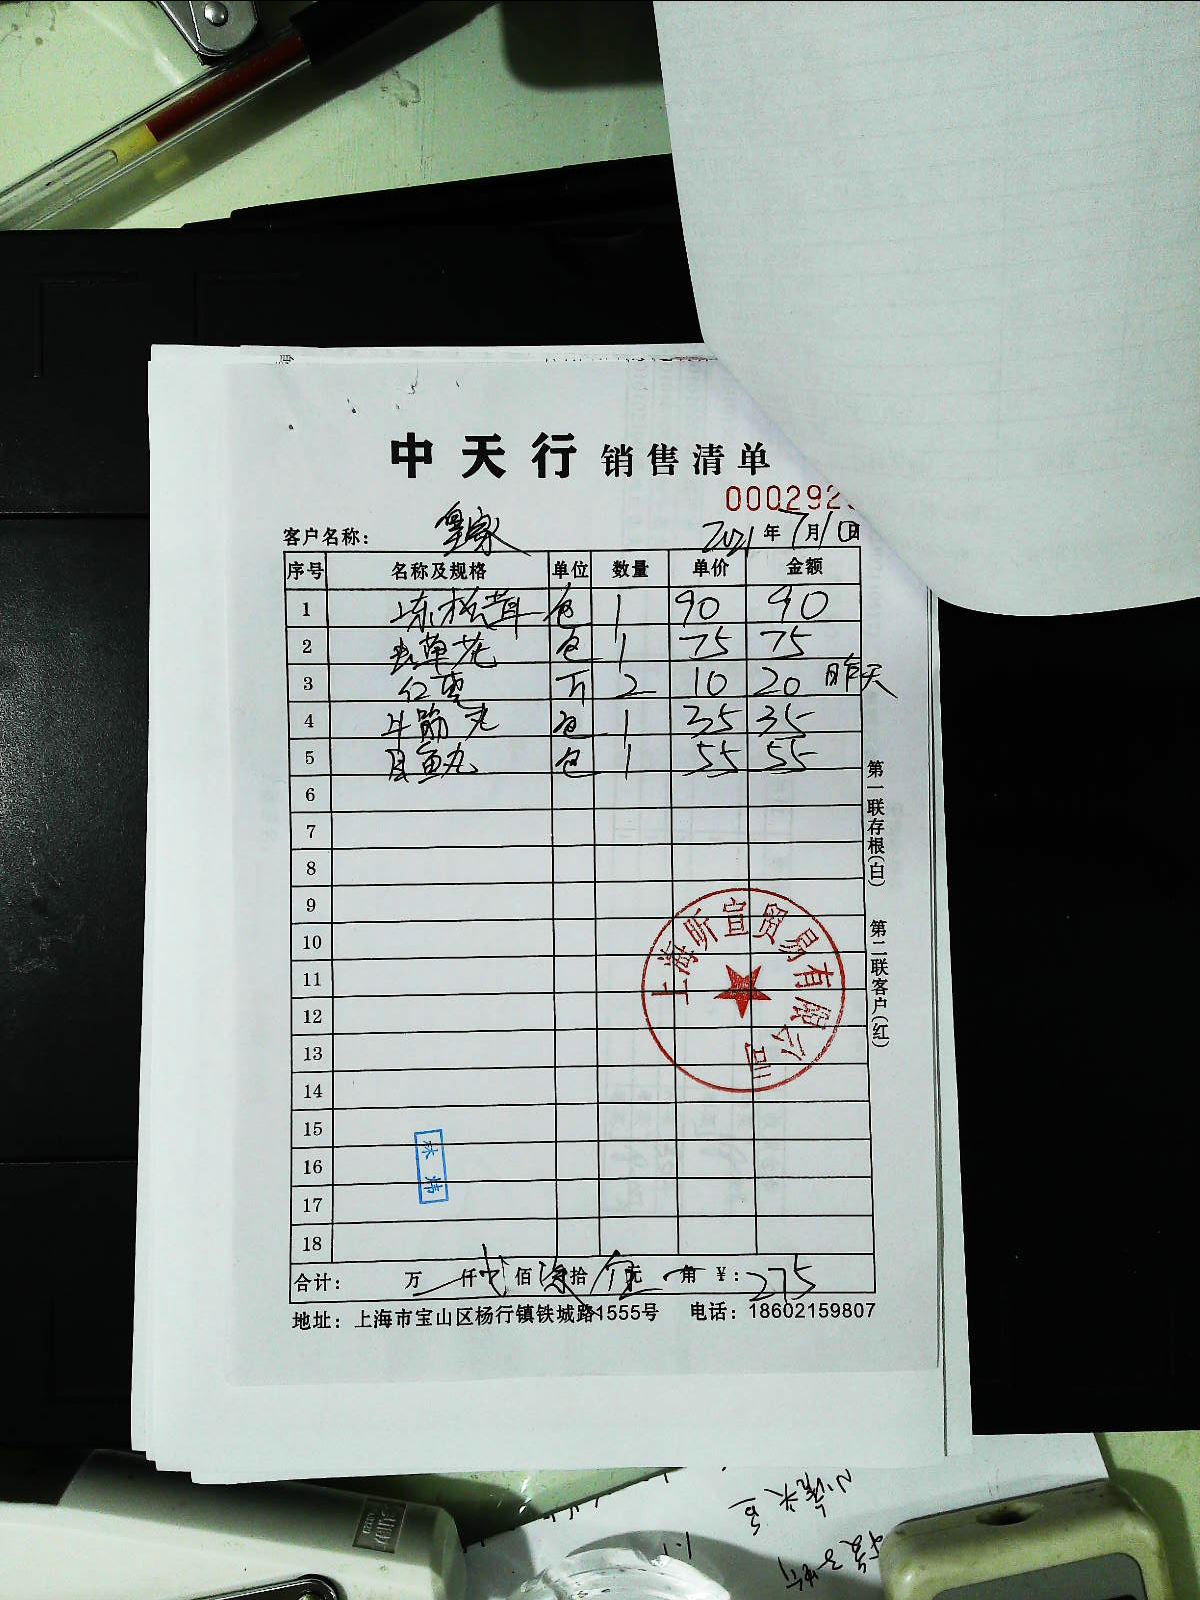 中天行 销售清单
000292
客户名称： 皇家 2021年7月10日
序号 名称及规格 单位 数量 单价 金额
1 冻松茸 包 1 90 90
2 虫草花 包 1 75 75
3 红枣 斤 2 10 20 昨天
4 牛筋丸 包 1 35 35
5 目鱼丸 包 1 55 55
6
7
8
9
10
11
12
13
14
15
16
17
18
第一联存根(白) 第二联客户(红)
上海昕宣贸易有限公司
合计： 万 仟 贰佰柒拾伍元 角 ¥：275
地址：上海市宝山区杨行镇铁城路1555号 电话：18602159807